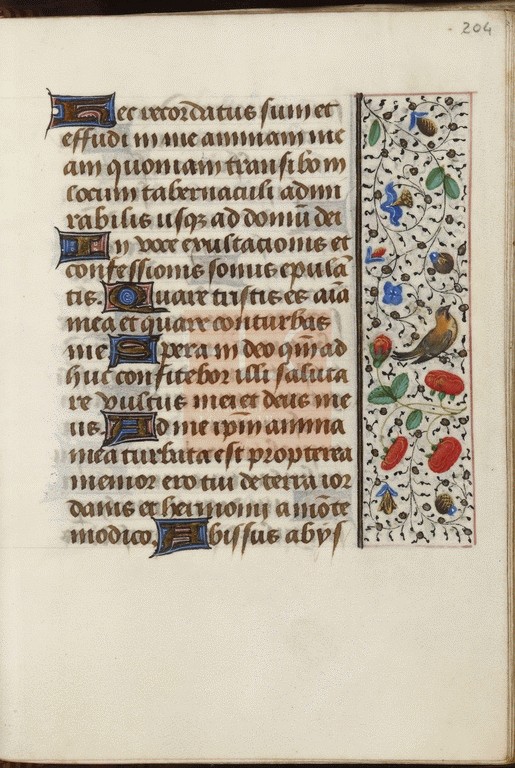 204
Hec recordatus sum et
effudi in me animam me
am quoniam transibo in
locum tabernaculi admi
rabilis usqꝫ ad domū dei
In voce exultationis et
confessionis sonus epulā
tis. Quare tristis es aīa
mea et quare conturbas
me Spera in deo qm̄ ad
huc confitebor illi saluta
re vultus mei et deus me
us. Ad me ip̄m anima
mea turbata est propterea
memor ero tui de terra ior
danis et hermonij a mōte
modico. Abissus abys